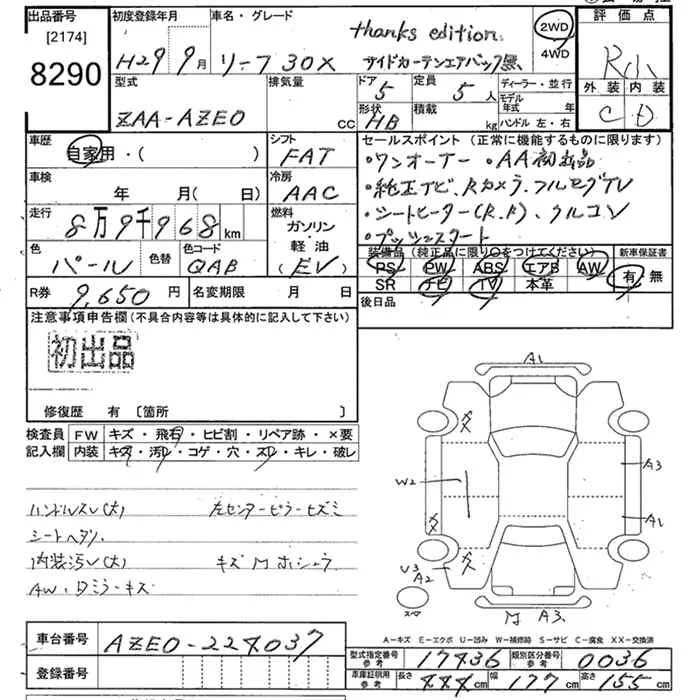 出品番号
[2174]
8290
初度登録年月
H29年9月
車名・グレード
thanks edition
リーフ 30X サイドカーテンエアバッグ無
2WD
4WD
評価点
R小
外装 内装
C D
型式
ZAA-AZE0
排気量
CC
ドア
5
定員
5人
形状
HB
積載
kg
ディーラー・並行
モデル年式 年
ハンドル 左・右
車歴
自家用・( )
シフト
FAT
セールスポイント(正常に機能するものに限ります)
・ワンオーナー ・AA初出品
・純正ナビ、Rカメラ、フルセグTV
・シートヒーター(R.F)、クルコン
・プッシュスタート
車検
年 月( 日)
冷房
AAC
走行
8万9千968km
燃料
ガソリン・軽油
(EV)
色
パール
色替
色コード
QAB
装備品(純正品に限り○をつけてください)
PS PW ABS エアB AW
SR ナビ TV 本革
新車保証書
有 無
R券 9,650円
名変期限 月 日
後日品
注意事項申告欄(不具合内容等は具体的に記入して下さい)
初出品
修復歴 有〔箇所 〕
検査員記入欄
FW キズ・飛石・ヒビ割・リペア跡・×要
内装 キズ・汚れ・コゲ・穴・スレ・キレ・破レ
ハンドルスレ(大) 左センターピラーヒズミ
シートヘタリ
内装汚レ(大) キズMホシュウ
AW・Dミラーキズ
A1
W2
A3
A1
U3
A2
スペア
M A3
A-キズ E-エクボ U-凹み W-補修跡 S-サビ C-腐食 XX-交換済
車台番号
AZE0-224037
登録番号
型式指定番号
参考
17436
類別区分番号
参考
0036
車庫証明用
参考
長さ 444cm 幅 177cm 高さ 155cm